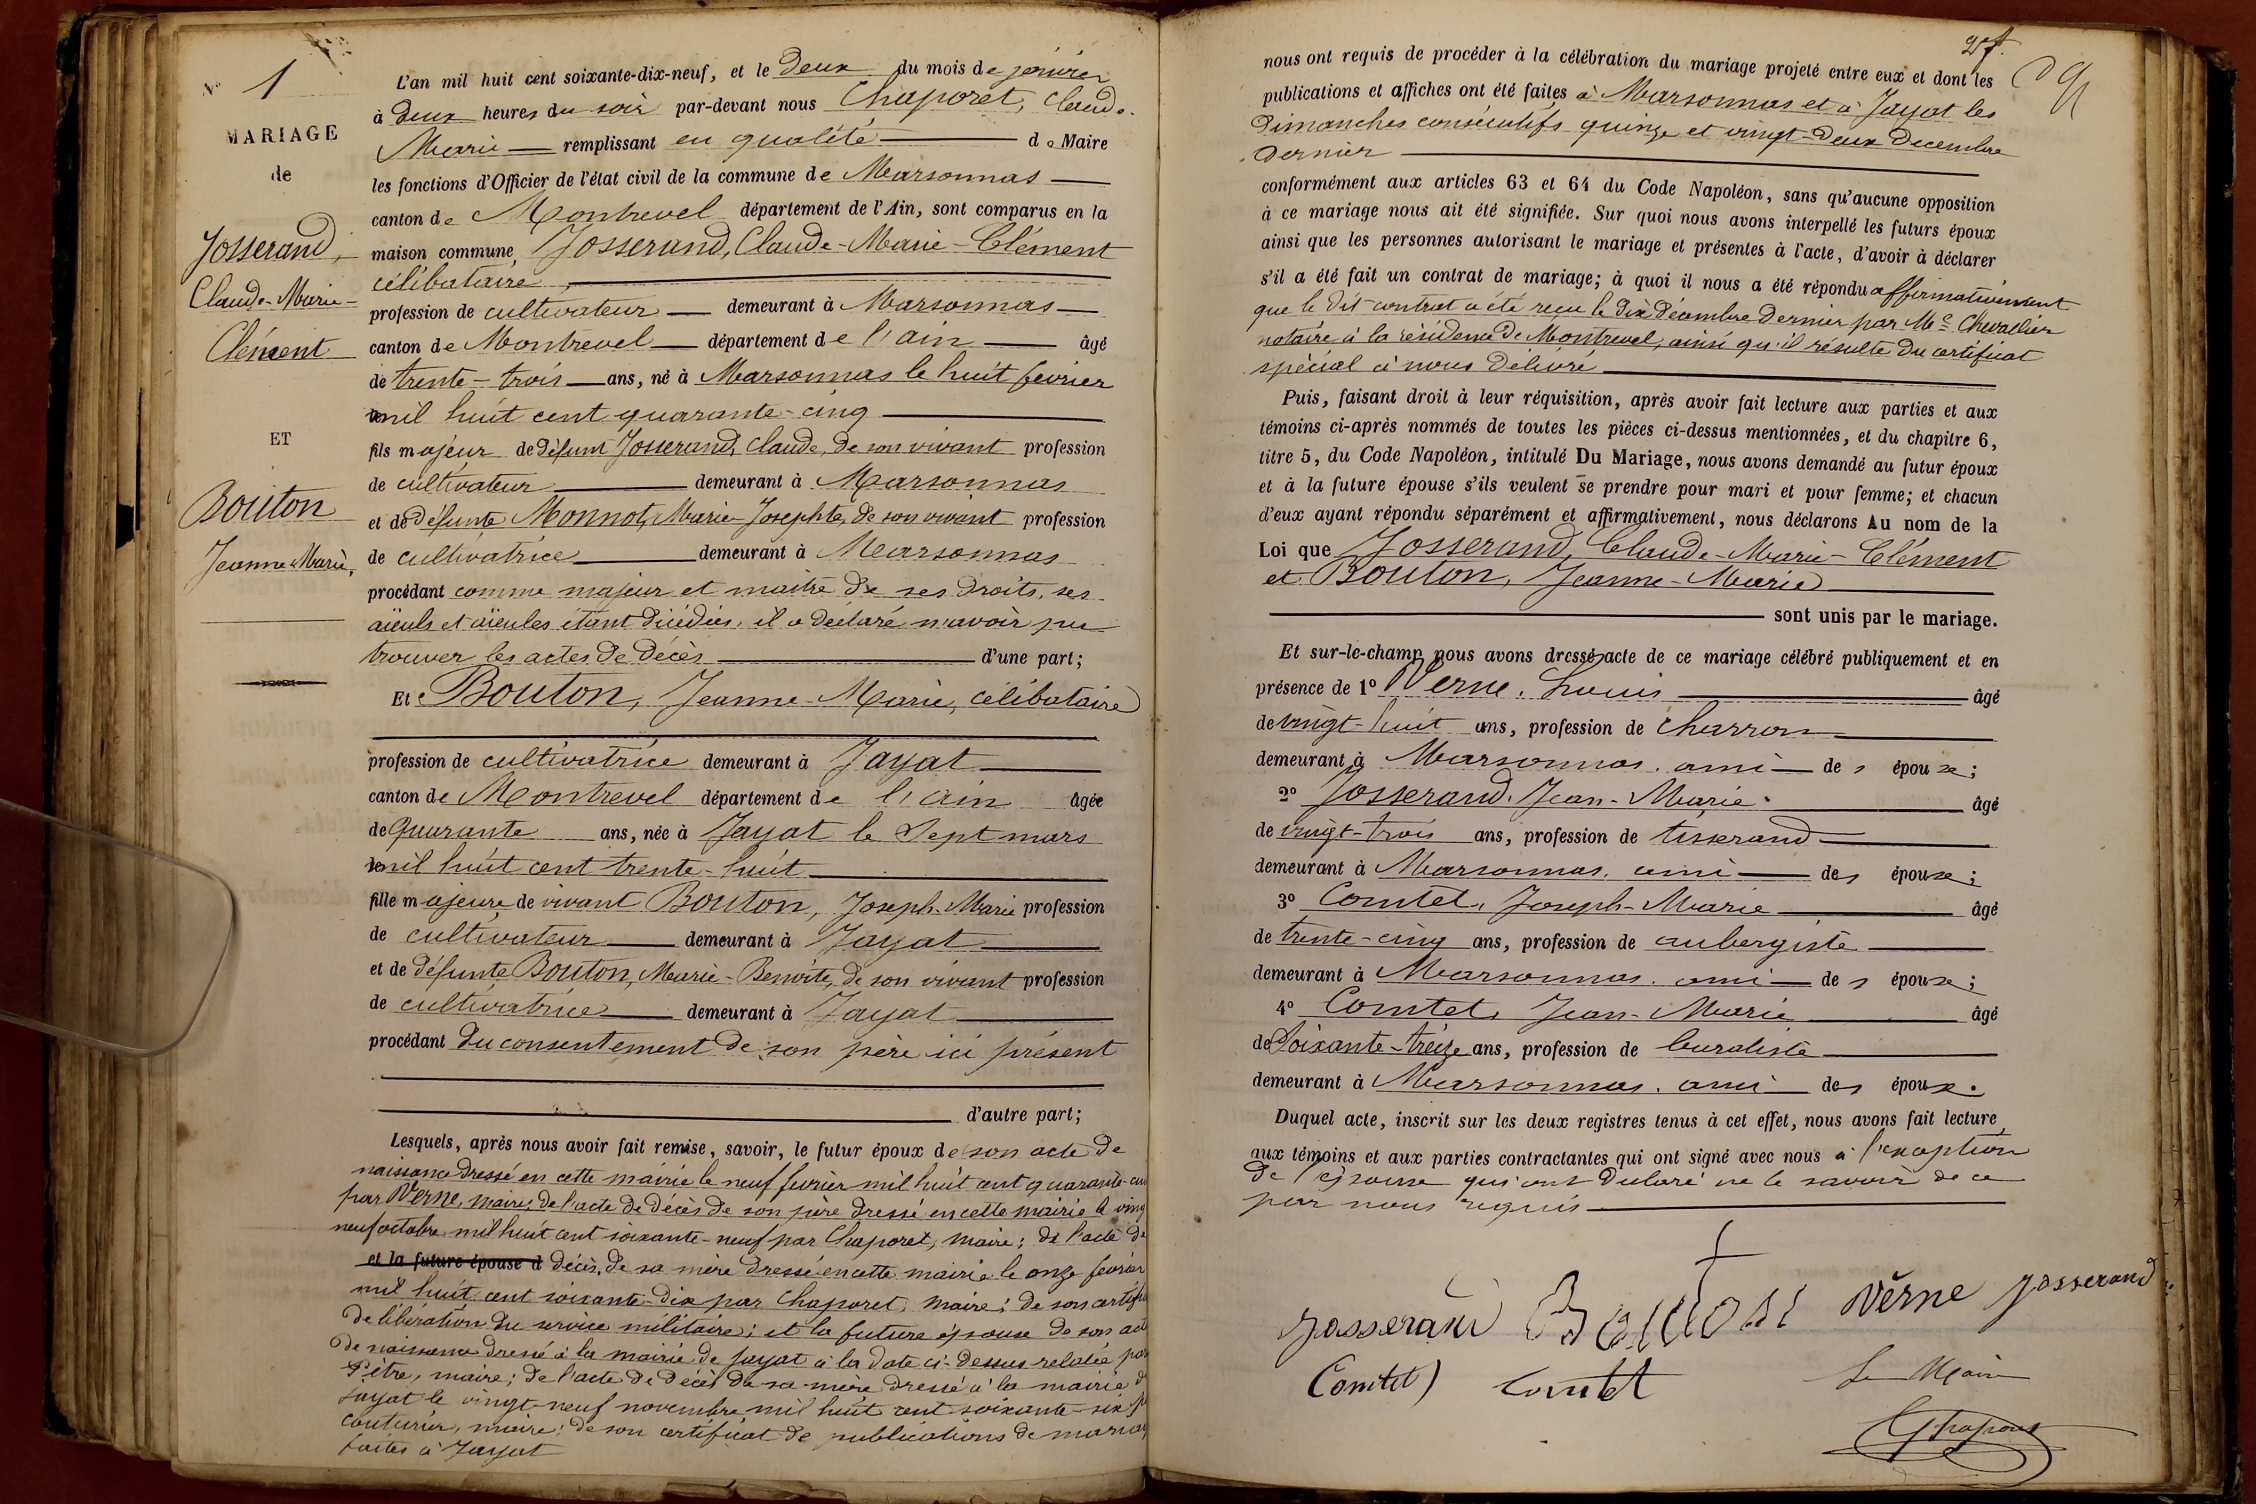 N° 1
MARIAGE
de
Josserand,
Claude-Marie-
Clément
ET
Bouton
Jeanne-Marie,
L'an mil huit cent soixante-dix-neuf, et le deux du mois de janvier
à deux heures du soir par-devant nous Chaporet, Claude-
Marie remplissant en qualité de Maire
les fonctions d'Officier de l'état civil de la commune de Marsonnas
canton de Montrevel département de l'Ain, sont comparus en la
maison commune, Josserand, Claude-Marie-Clément
célibataire,
profession de cultivateur demeurant à Marsonnas
canton de Montrevel département de l'ain âgé
de trente-trois ans, né à Marsonnas le huit fevrier
mil huit cent quarante-cinq
fils majeur de défunt Josserand, Claude, de son vivant profession
de cultivateur demeurant à Marsonnas
et de défunte Monnot, Marie-Josephte, de son vivant profession
de cultivatrice demeurant à Marsonnas
procédant comme majeur et maitre de ses droits, ses
aïeuls et aïeules étant décédés, il a déclaré n'avoir pu
trouver les actes de décès d'une part;
Et Bouton, Jeanne-Marie, célibataire
profession de cultivatrice demeurant à Jayat
canton de Montrevel département de l'ain âgée
de Quarante ans, née à Jayat le Sept mars
mil huit cent trente-huit
fille majeure de vivant Bouton, Joseph-Marie profession
de cultivateur demeurant à Jayat
et de défunte Bouton, Marie-Benoite, de son vivant profession
de cultivatrice demeurant à Jayat
procédant du consentement de son père ici présent
d'autre part;
Lesquels, après nous avoir fait remise, savoir, le futur époux de son acte de
naissance dressé en cette mairie le neuf fevrier mil huit cent quarante-cin
par Verne, maire; de l'acte de décès de son père dressé en cette mairie le ving
neuf octobre mil huit cent soixante-neuf par Chaporet, maire; de l'acte de
et la future épouse d décès, de sa mère dressé en cette mairie le onze fevrier
mil huit cent soixante-dix par Chaporet, maire; de son certifi
de libération du service militaire; et la future épouse de son act
de naissance dressé à la mairie de Jayat à la date ci-dessus relatée par
Pitre, maire; de l'acte de décès de sa mère dressé à la mairie d
Jayat le vingt-neuf novembre mil huit cent soixante-six p
Couturier, maire; de son certificat de publications de maria
faites à Jayat
nous ont requis de procéder à la célébration du mariage projeté entre eux et dont les
publications et affiches ont été faites à Marsonnas et à Jayat les
dimanches consécutifs quinze et vingt-deux Decembre
dernier
conformément aux articles 63 et 64 du Code Napoléon, sans qu'aucune opposition
à ce mariage nous ait été signifiée. Sur quoi nous avons interpellé les futurs époux
ainsi que les personnes autorisant le mariage et présentes à l'acte, d'avoir à déclarer
s'il a été fait un contrat de mariage; à quoi il nous a été répondu affirmativement
que le dit contrat a été reçu le dix décembre dernier par Me Chevallier
notaire à la résidence de Montrevel, ainsi qu'il résulte du certificat
spécial à nous délivré
Puis, faisant droit à leur réquisition, après avoir fait lecture aux parties et aux
témoins ci-après nommés de toutes les pièces ci-dessus mentionnées, et du chapitre 6,
titre 5, du Code Napoléon, intitulé Du Mariage, nous avons demandé au futur époux
et à la future épouse s'ils veulent se prendre pour mari et pour femme; et chacun
d'eux ayant répondu séparément et affirmativement, nous déclarons Au nom de la
Loi que Josserand, Claude-Marie-Clément
et Bouton, Jeanne-Marie
sont unis par le mariage.
Et sur-le-champ nous avons dressé acte de ce mariage célébré publiquement et en
présence de 1° Verne, Louis âgé
de vingt-huit ans, profession de charron
demeurant à Marsonnas, ami des époux;
2° Josserand, Jean-Marie âgé
de vingt-trois ans, profession de tisserand
demeurant à Marsonnas, ami des époux;
3° Comtet, Joseph-Marie âgé
de trente-cinq ans, profession de aubergiste
demeurant à Marsonnas, ami des époux;
4° Comtet, Jean-Marie âgé
de Soixante-treize ans, profession de buraliste
demeurant à Marsonnas, ami des époux.
Duquel acte, inscrit sur les deux registres tenus à cet effet, nous avons fait lecture
aux témoins et aux parties contractantes qui ont signé avec nous à l'exception
de l'épouse qui ont déclaré ne le savoir de ce
par nous requis
Josserand Bouton Verne Josserand
Comtet Comtet Le Maire
Chaporet